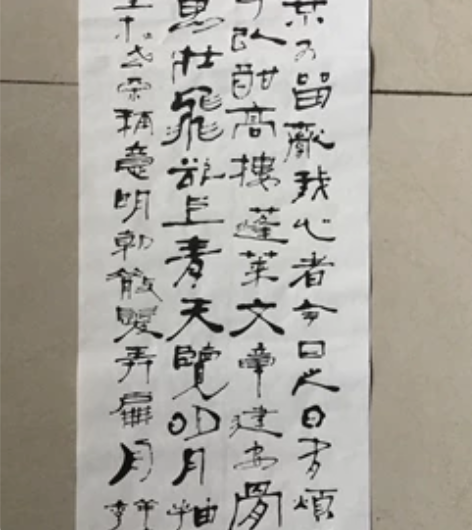 可留亂我心者今日之日多煩
以酣高樓蓬萊文章建安骨
壯飛欲上青天覽明月抽
生在世不稱意明朝散髮弄扁舟